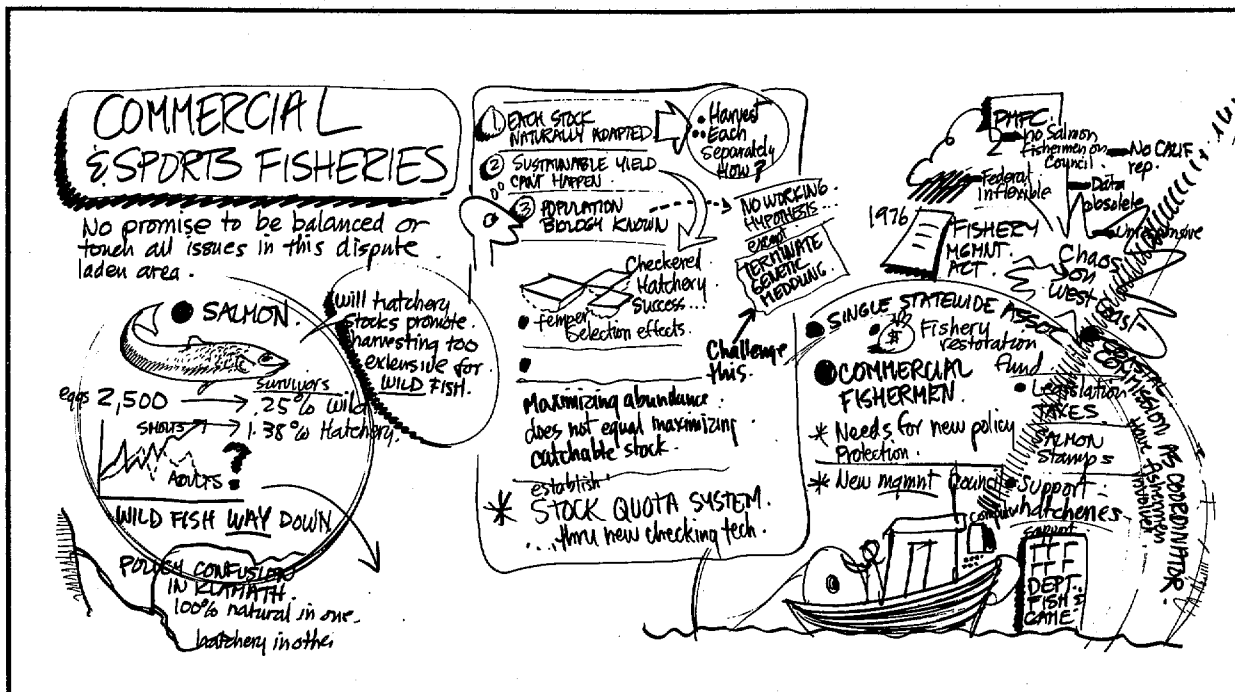 COMMERCIAL
& SPORTS FISHERIES
No promise to be balanced or
touch all issues in this dispute
laden area.
SALMON.
eggs 2,500
survivors
.25% wild
1.38% Hatchery.
ADULTS ?
WILD FISH WAY DOWN
POLICY CONFUSION
IN KLAMATH.
100% natural in one.
hatchery in other
will hatchery
stocks promote
harvesting too
extensive for
WILD FISH.
① EACH STOCK
NATURALLY ADAPTED
② SUSTAINABLE YIELD
CAN'T HAPPEN
③ POPULATION
BIOLOGY KNOWN
• Harvest
•• Each
separately
HOW?
NO WORKING
HYPOTHESIS...
except
TERMINATE
GENETIC
MEDDLING.
Checkered
Hatchery
Success...
• temper
selection effects.
Challenge
this.
Maximizing abundance
does not equal maximizing
catchable stock.
establish
* STOCK QUOTA SYSTEM.
...thru new checking tech.
PMFC.
no Salmon
fishermen on
Council.
No CALIF
rep.
Federal
inflexible
Data
obsolete
Unresponsive
1976
FISHERY
MGMNT.
ACT
Chaos
on
West
Coast
SINGLE STATEWIDE ASSOC
$ Fishery
restoration
fund
COMMERCIAL
FISHERMEN.
* Needs for new policy
Protection.
* New mgmnt Council
• Legislation
TAXES.
SALMON
Stamps
• Support
hatcheries.
support
DEPT.
FISH &
GAME
COASTAL
COMMISSION AS COORDINATOR.
Have fishermen
involved